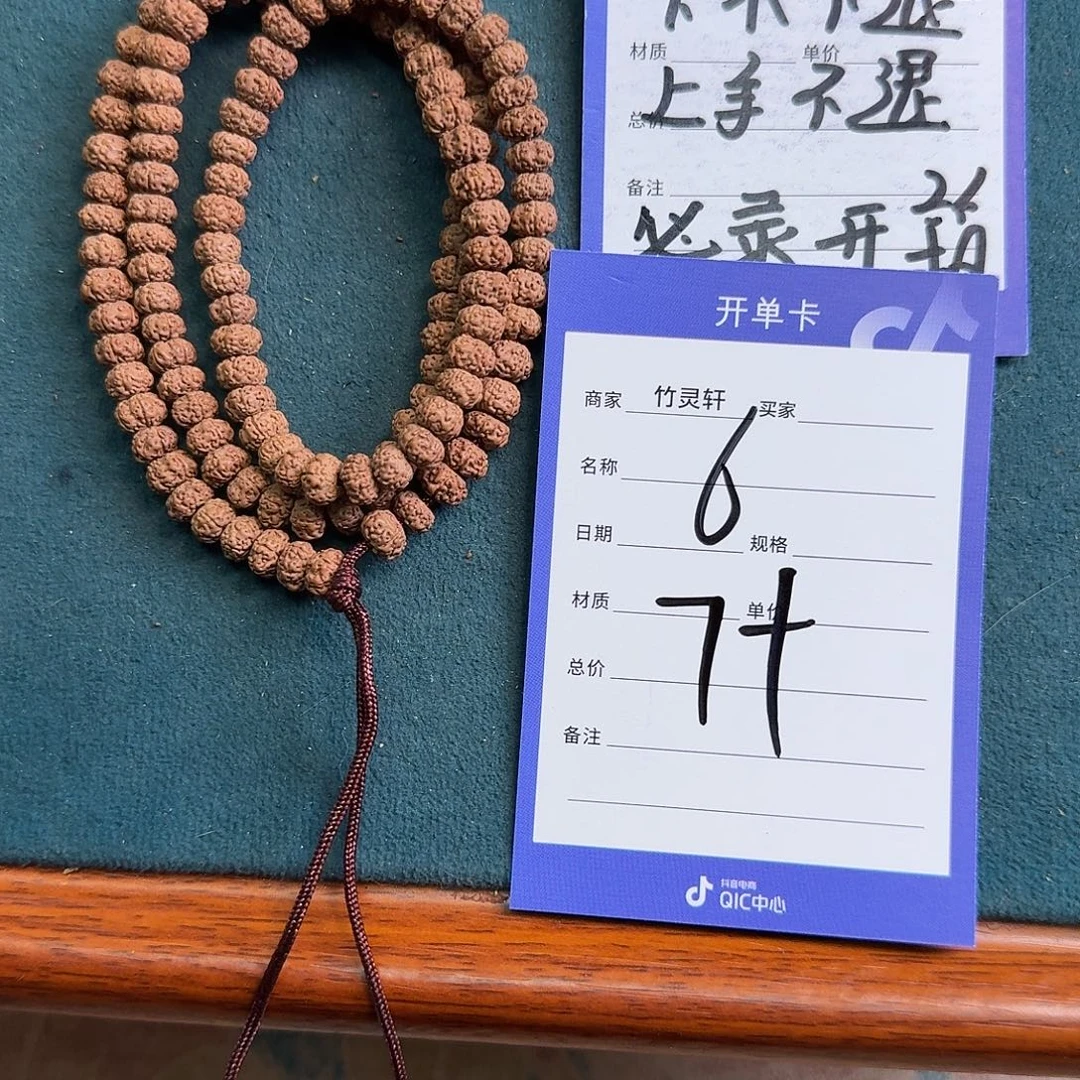 材质 单价
总价
上手不退
备注
必录开箱
开单卡
商家 竹灵轩 买家
名称
6
日期 规格
材质 单价
7十
总价
备注
抖音电商
QIC中心